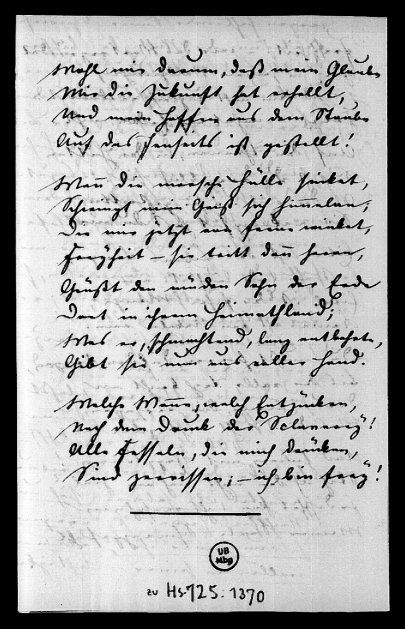 Wohl mir darum, daß mein Glaube
Mir die Zukunft hat erhellt,
Und mein Hoffen aus dem Staube
Auf das Jenseits ist gestellt!
Wenn die morsche Hülle sinket,
Schwingt mein Geist sich himmelan;
Die mir jetzt von ferne winket,
Freyheit – sie tritt dann heran,
Grüßt den müden Sohn der Erde
Dort in ihrem Heimathland;
Was er, schmachtend, lang entbehrte,
Gibt sie nun aus voller Hand.
Welche Wonne, welch Entzücken,
Nach dem Druck der Sclaverey!
Alle Fesseln, die mich drücken,
Sind zerrissen; – ich bin frey!
UB
Mbg
zu Hs. 725:1370